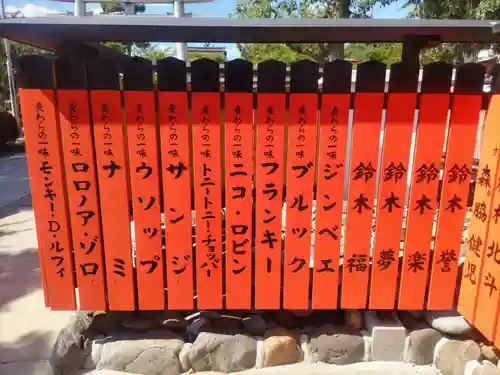 麦わらの一味
モンキー・D・ルフィ
麦わらの一味
ロロノア・ゾロ
麦わらの一味
ナミ
麦わらの一味
ウソップ
麦わらの一味
サンジ
麦わらの一味
トニートニー・チョッパー
麦わらの一味
ニコ・ロビン
麦わらの一味
フランキー
麦わらの一味
ブルック
麦わらの一味
ジンベエ
鈴木 福
鈴木 夢
鈴木 楽
鈴木 誉
森脇健児
北斗